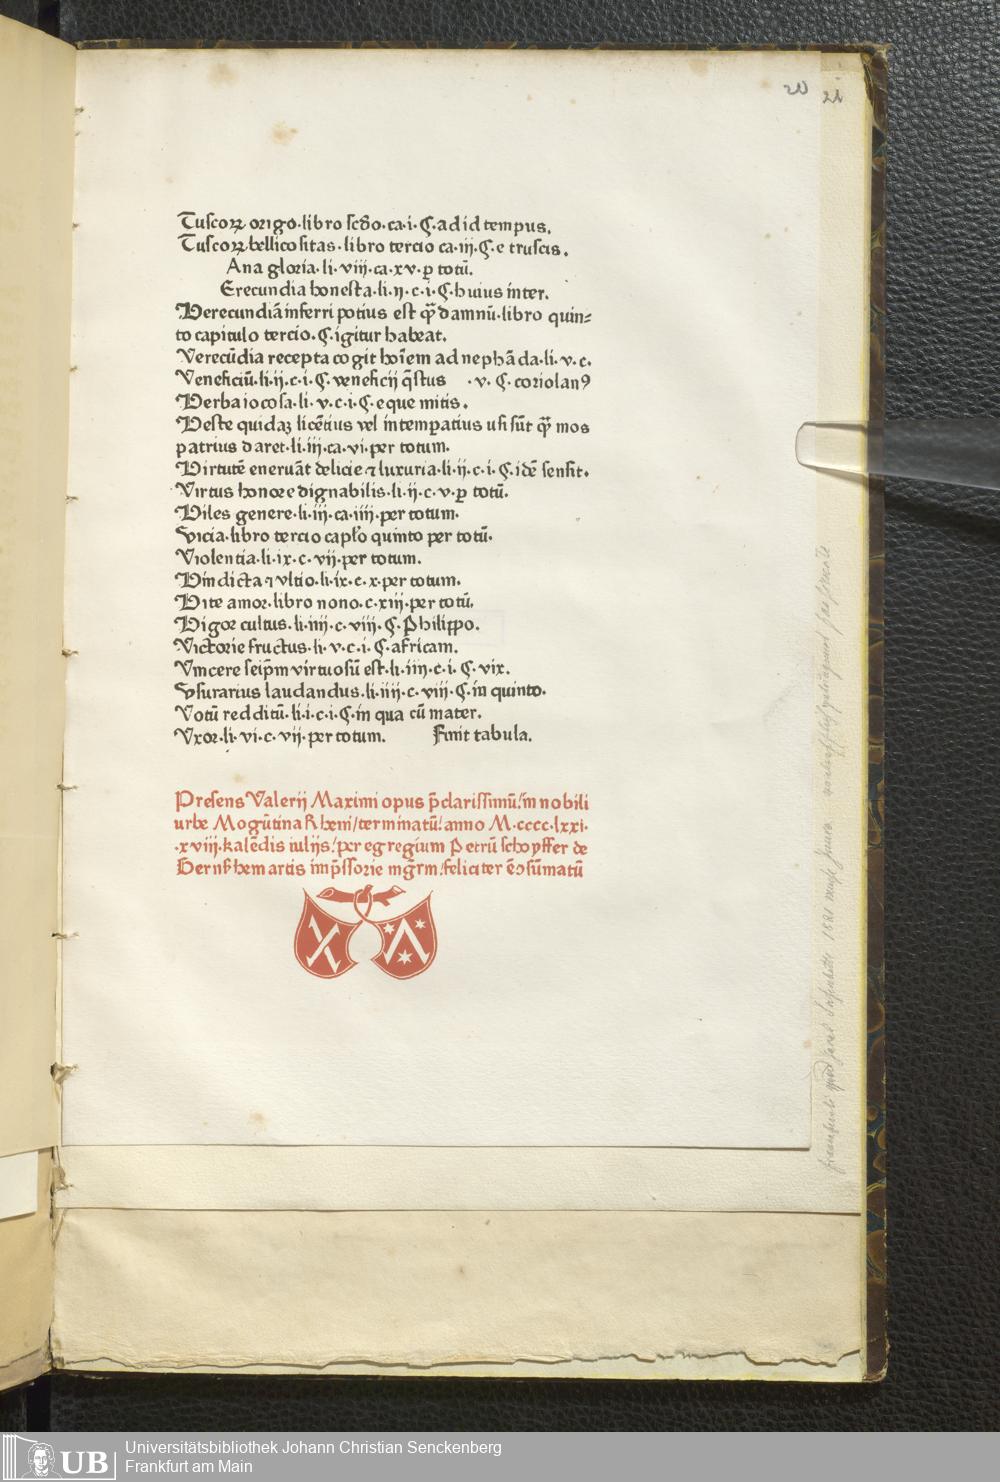 Tuscoꝝ origo·libro scd̄o·ca·i·ꞔ·ad id tempus.
Tuscoꝝ bellicositas·libro tercio ca·iij·ꞔ·e truscis.
Ana gloria·li·viij·ca·xv·ꝑ totū.
Erecundia honesta·li·ij·c·i·ꞔ·huius inter.
Verecundiā inferri potius est q̄ꝫ damnū·libro quin⸗
to capitulo tercio·ꞔ·igitur habeat.
Verecūdia recepta cogit hoīem ad nephāda·li·v·c.
Veneficiū·li·ij·c·i·ꞔ·veneficij q̄stus ·v·ꞔ·coriolanꝰ
Verba iocosa·li·v·c·i·ꞔ·eque mitis.
Veste quidaꝫ licētius vel intemꝑatius usi sūt q̄ꝫ mos
patrius daret·li·iij·ca·vi·per totum.
Virtutē eneruāt delicie ⁊ luxuria·li·ij·c·i·ꞔ·idē sensit.
Virtus honore dignabilis·li·ij·c·v·ꝑ totū.
Viles genere·li·iij·ca·iiij·per totum.
Vicia·libro tercio caplo quinto per totū.
Violentia·li·ix·c·vij·per totum.
Vindicta ⁊ vltio·li·ix·c·x·per totum.
Vite amor·libro nono·c·xiij·per totū.
Vigor cultus·li·iiij·c·viij·ꞔ·Philippo.
Victorie fructus·li·v·c·i·ꞔ·africam.
Vincere seip̄m virtuosū est·li·iiij·c·i·ꞔ·vix.
Vsurarius laudandus·li·iiij·c·viij·ꞔ·in quinto.
Votū redditū·li·i·c·i·ꞔ·in qua cū mater.
Vxor·li·vi·c·vij·per totum. Finit tabula.
Presens Valerij Maximi opus p̄clarissimū/in nobili
urbe Mogūtina Rheni/terminatū/anno M·cccc·lxxi·
·xviij·kalēdis iulijs/per egregium Petrū schoyffer de
Gernsshem artis imp̄ssorie mgr̄m/feliciter ē ꝯsūmatū
Universitätsbibliothek Johann Christian Senckenberg
Frankfurt am Main
UB